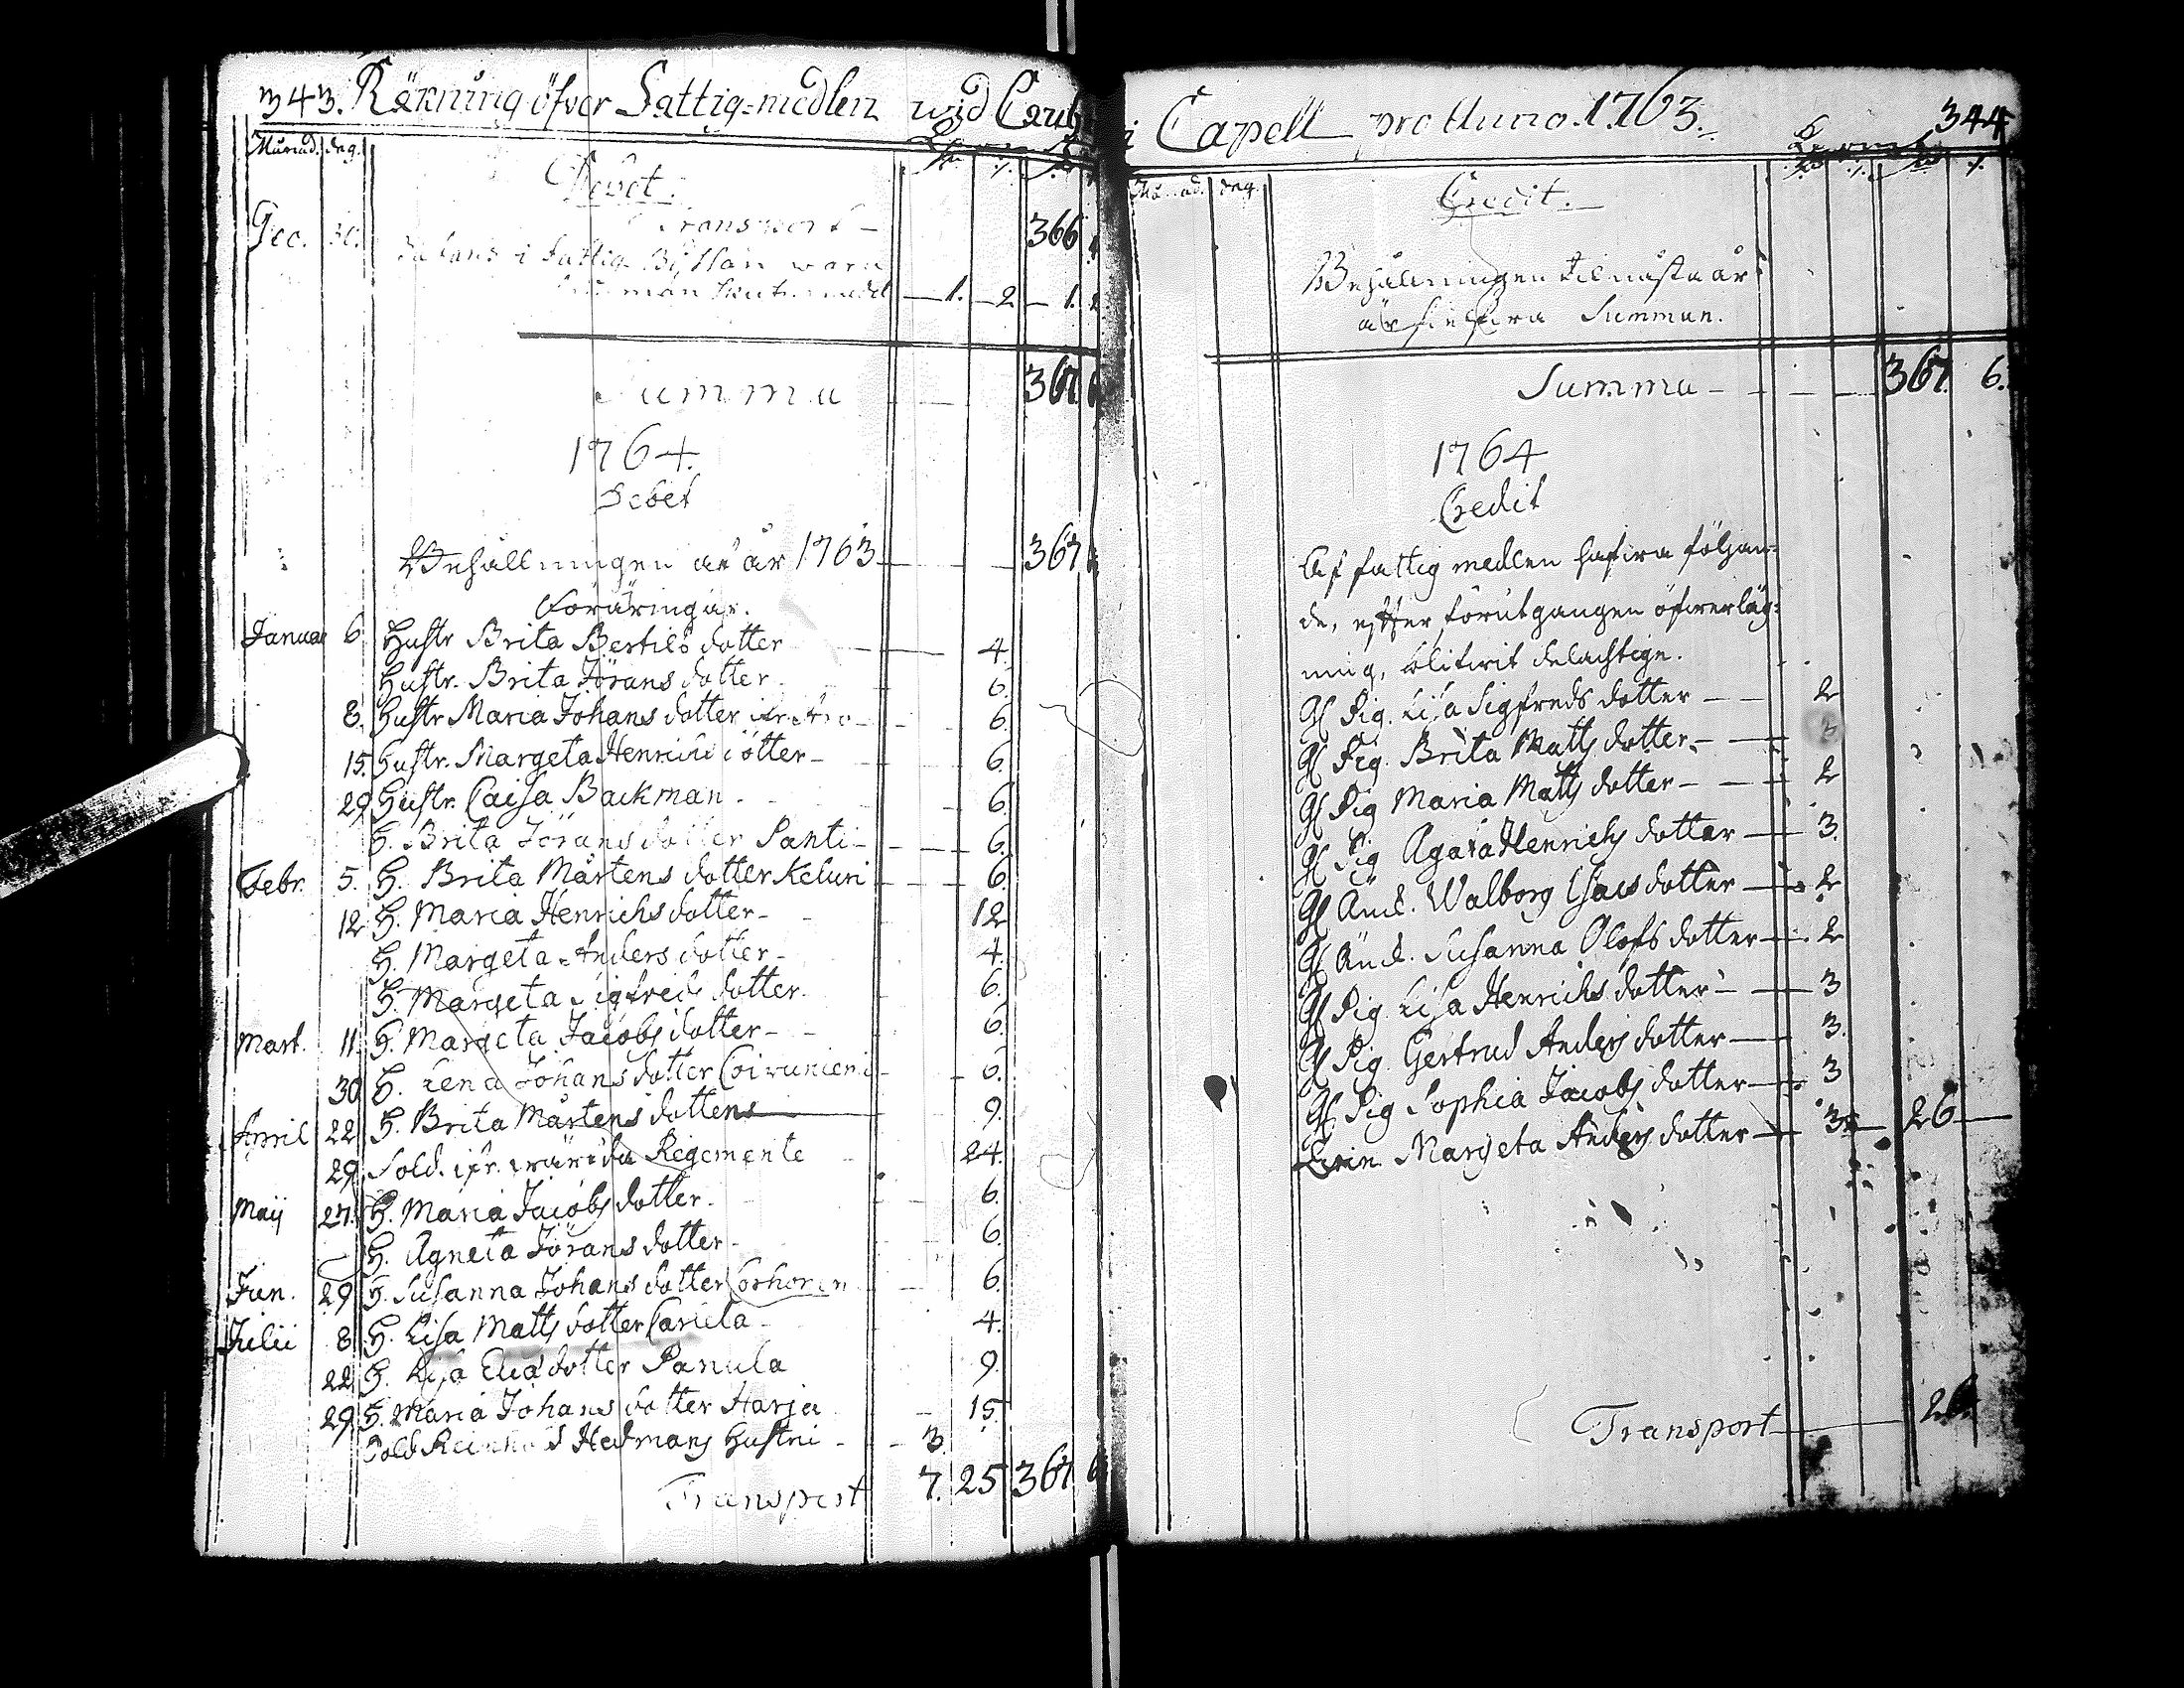 343. Räkning öfver Fattig=medlen wid Cauh
Månad. dag.
Debet.
Dec. Transport — 366
i Fattig Byssan
— 1. — 2 — 1. 2
Summa — 367. 6
1764.
Debet
Behållningen af år 1763 — 367.
Föräringar.
Januar 6. Hustr Brita Bertils dotter — 4.
Hustr. Brita Jörans dotter — 6.
8. Hustr Maria Johans dotter — 6.
15. Hustr. Margeta Henrichs dotter — 6.
29 Hustr. Caisa Backman — 6.
H. Brita Jörans dotter Panti — 6.
Febr. 5. H. Brita Mårtens dotter Keturi — 6.
12 H. Maria Henrichs dotter — 12
H. Margeta Anders dotter — 4.
H. Margeta Sigfreds dotter — 6.
Mart. 11. H. Margeta Jacobs dotter — 6.
30 H. Lena Johans dotter — 6.
April 22 H. Brita Mårtens dotter — 9.
29 Sold. Regemente 24.
Maij 27. H. Maria Jacobs dotter — 6.
H. Agneta Jörans dotter — 6.
Jun. 29 H. Susanna Johans dotter — 6.
Julii 8 H. Lisa Matts dotter — 4.
22 H. Lisa Elias dotter Panula 9.
29 H. Maria Johans dotter Harja 15.
Sold Reinhold Hedmans hustru — 3.
Transport 7. 25 367 6
i Capell pro Anno. 1763. 344
Månad. dag.
Credit.
Behållningen til nästa år
är sielfwa Summan.
Summa — 367. 6.
1764
Credit
Af fattig medlen hafwa följan=
de, efter förutgången öfwerläg=
ning, blifwit delachtige.
Gl Pig. Lisa Sigfreds dotter — 2
Gl Pig. Brita Matts dotter —
Gl Pig Maria Matts dotter — 2
Gl Pig Agata Henrichs dotter — 3.
Gl Änk. Walborg Isacs dotter — 2
Gl Änk. Susanna Olofs dotter — 2
Gl Pig. Lisa Henrichs dotter — 3
Gl Pig. Gertrud Anders dotter — 3.
Gl Pig Sophia Jacobs dotter — 3
Margeta Anders dotter — 3 — 26 —
Transport — 26